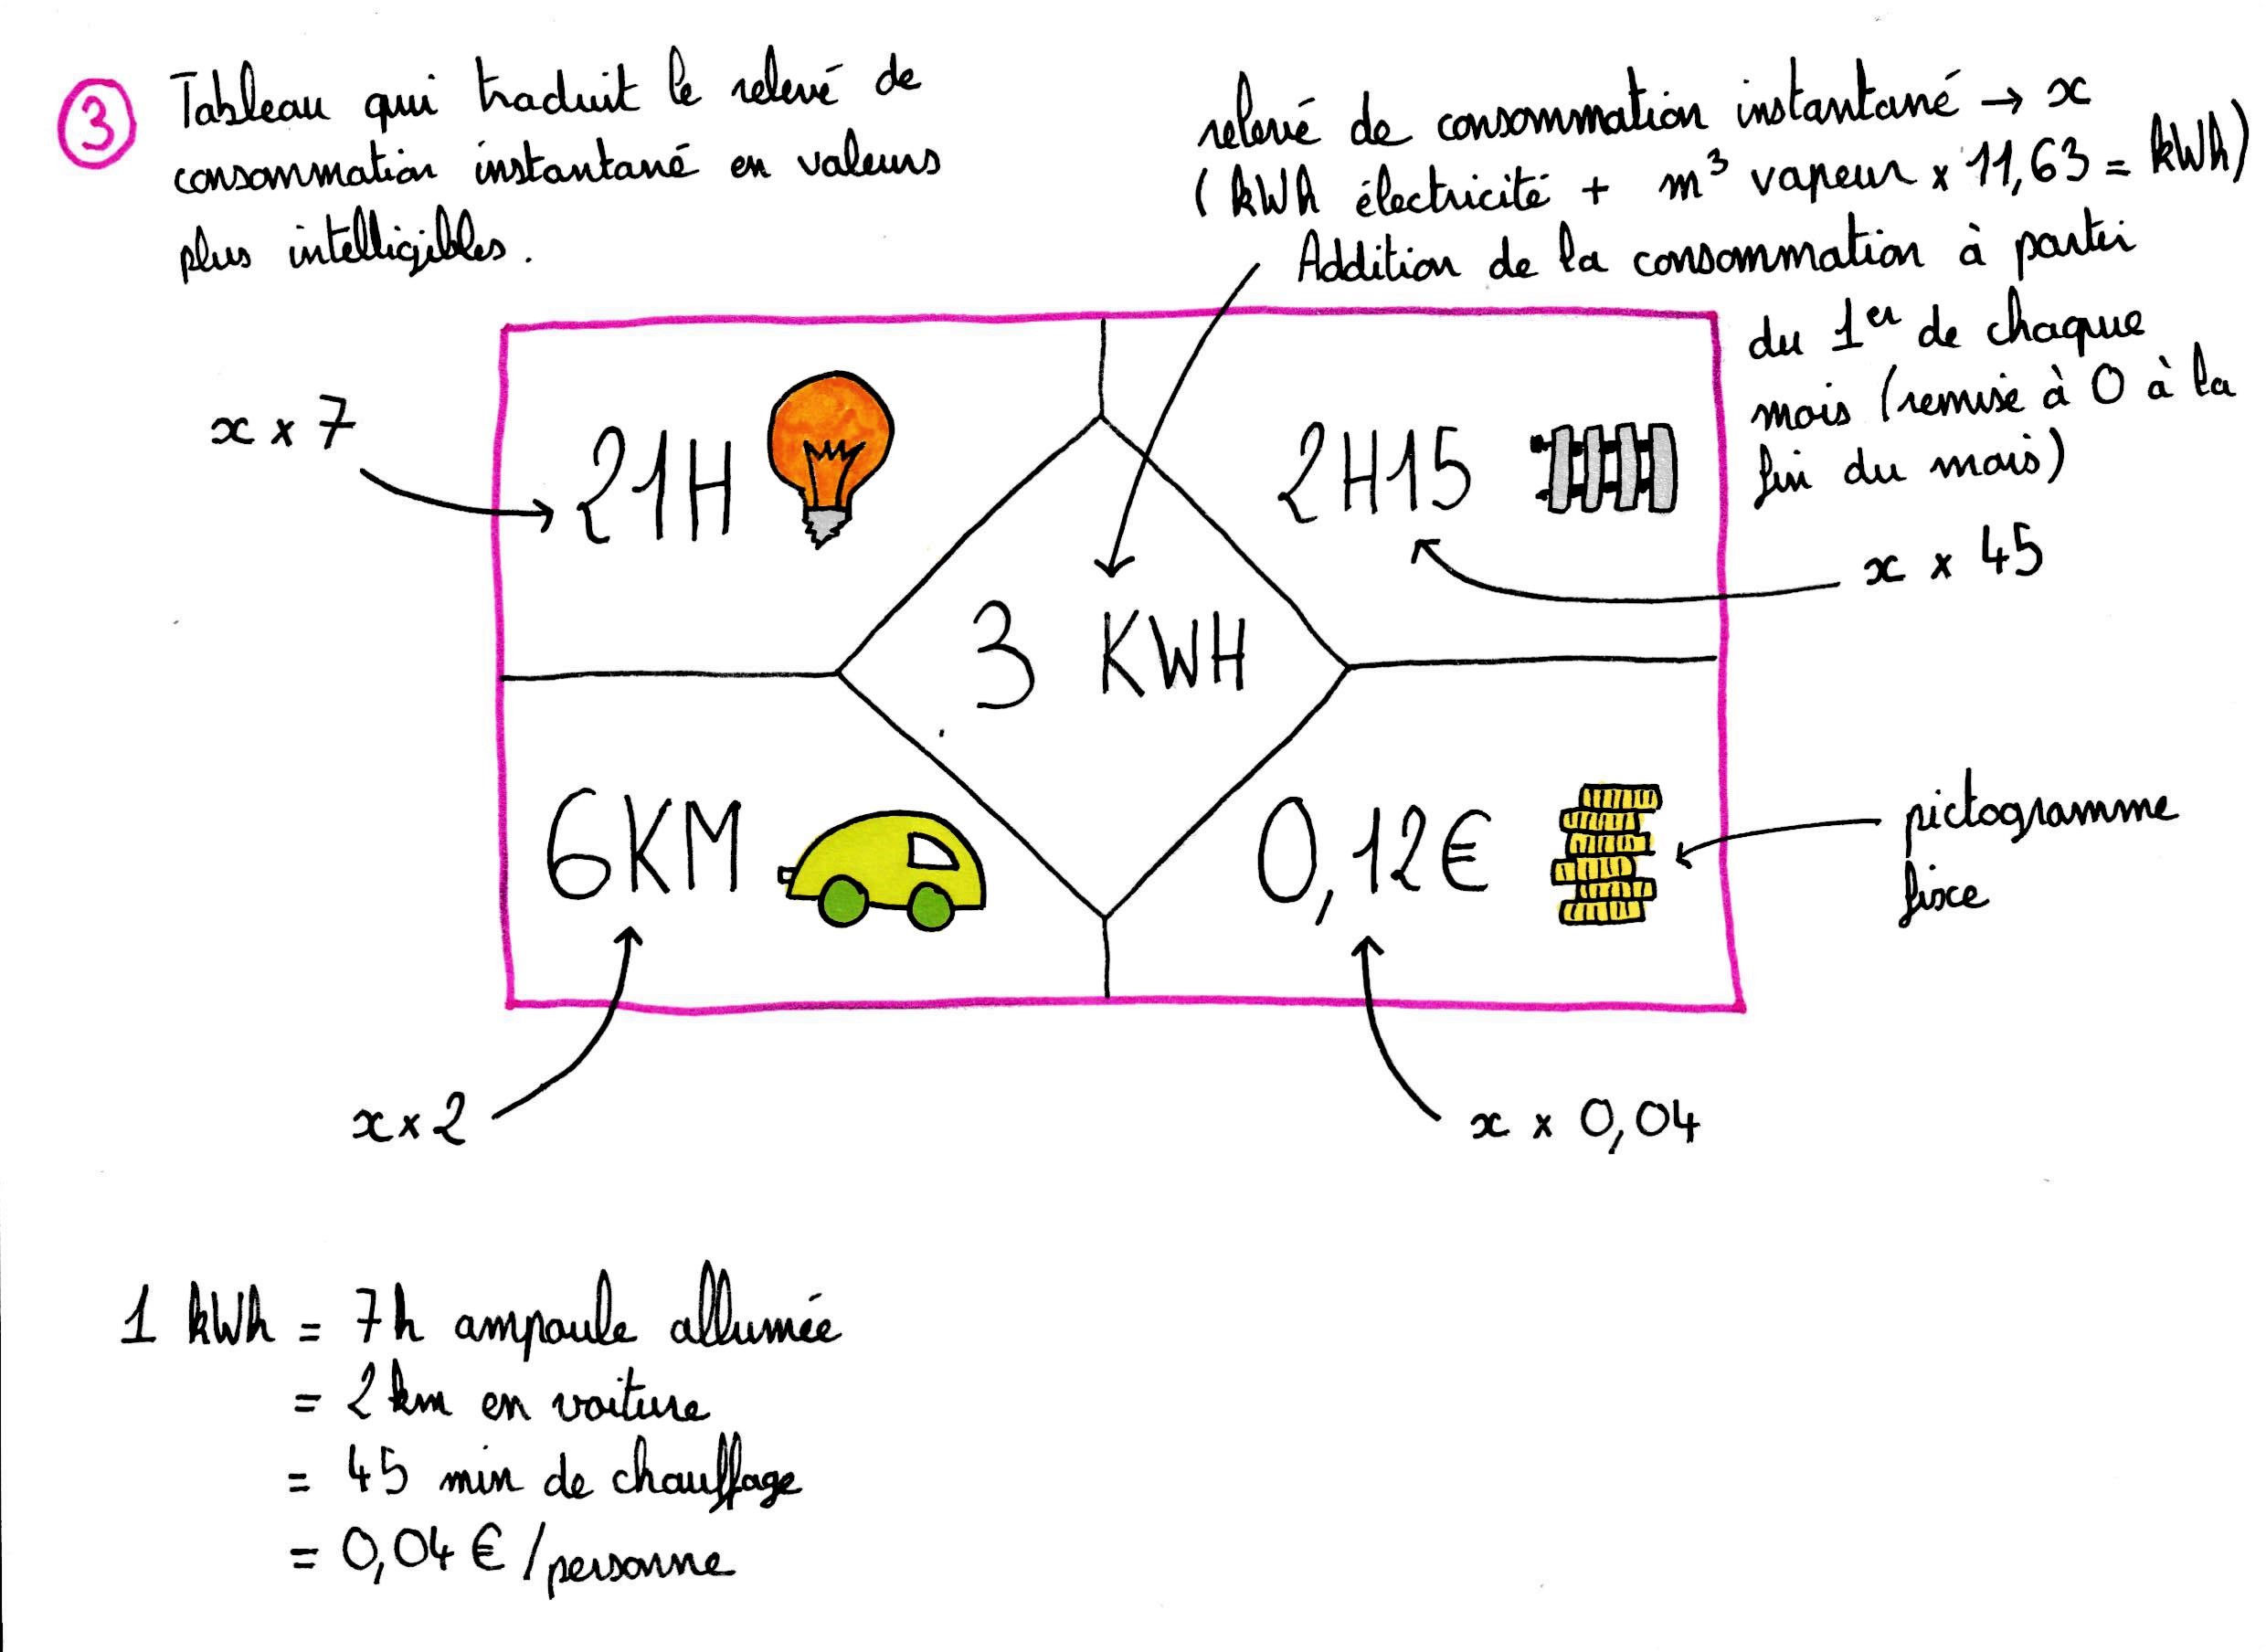 3 Tableau qui traduit le relevé de
consommation instantané en valeurs
plus intelligibles.
relevé de consommation instantané → x
(kWh électricité + m³ vapeur x 11,63 = kWh)
Addition de la consommation à partir
du 1er de chaque
mois (remise à 0 à la
fin du mois)
x x 7
21H
2H15
x x 45
3 KWH
6KM
0,12€
pictogramme
fixe
x x 2
x x 0,04
1 kWh = 7h ampoule allumée
= 2 km en voiture
= 45 min de chauffage
= 0,04 € / personne